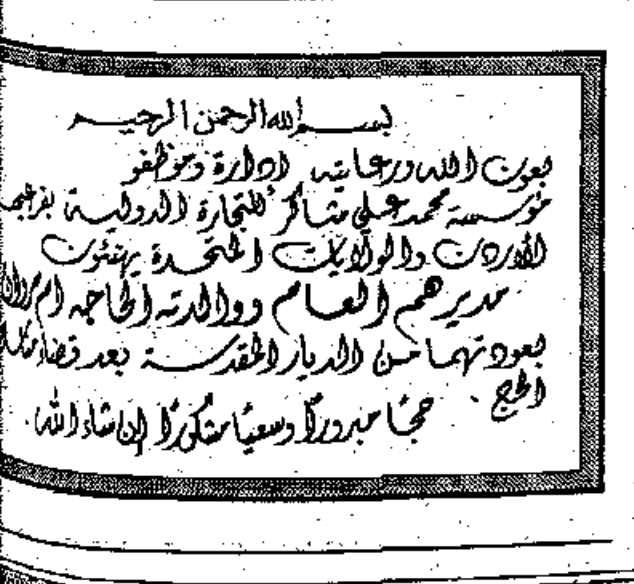 بسم الله الرحمن الرحيم
بعون الله ورعايته ادارة وموظفو
مؤسسة محمد علي شاكر للتجارة الدولية بفرعيها
الأردن والولايات المتحدة يهنئون
مديرهم العام ووالدته الحاجه ام مروان
بعودتهما من الديار المقدسة بعد قضاء مناسك
الحج
حجًا مبرورًا وسعيًا مشكورًا إن شاء الله.